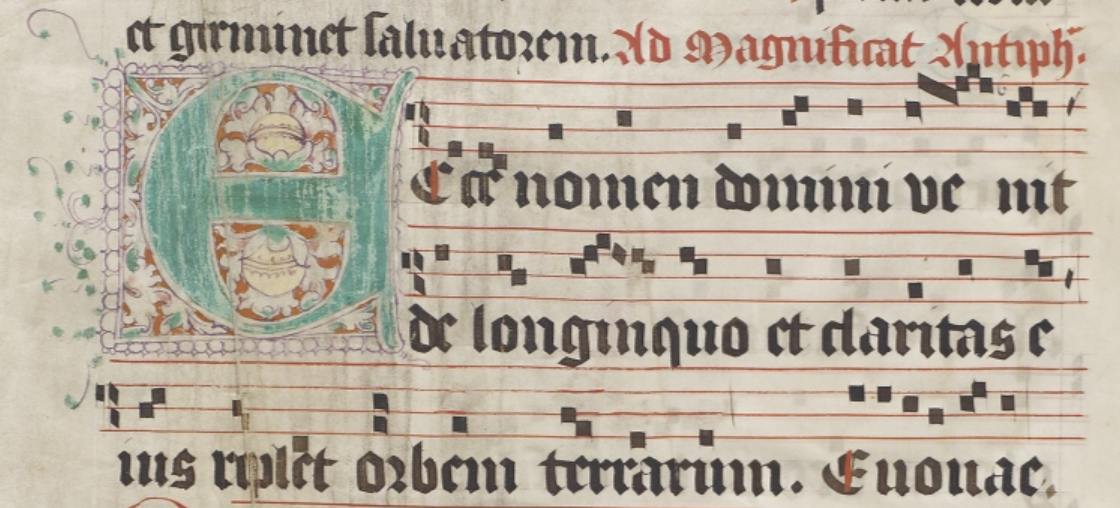 et germinet saluatorem. Ad Magnificat Antiph.
Ecce nomen domini ve nit
de longinquo et claritas e
ius replet orbem terrarum. Euouae.